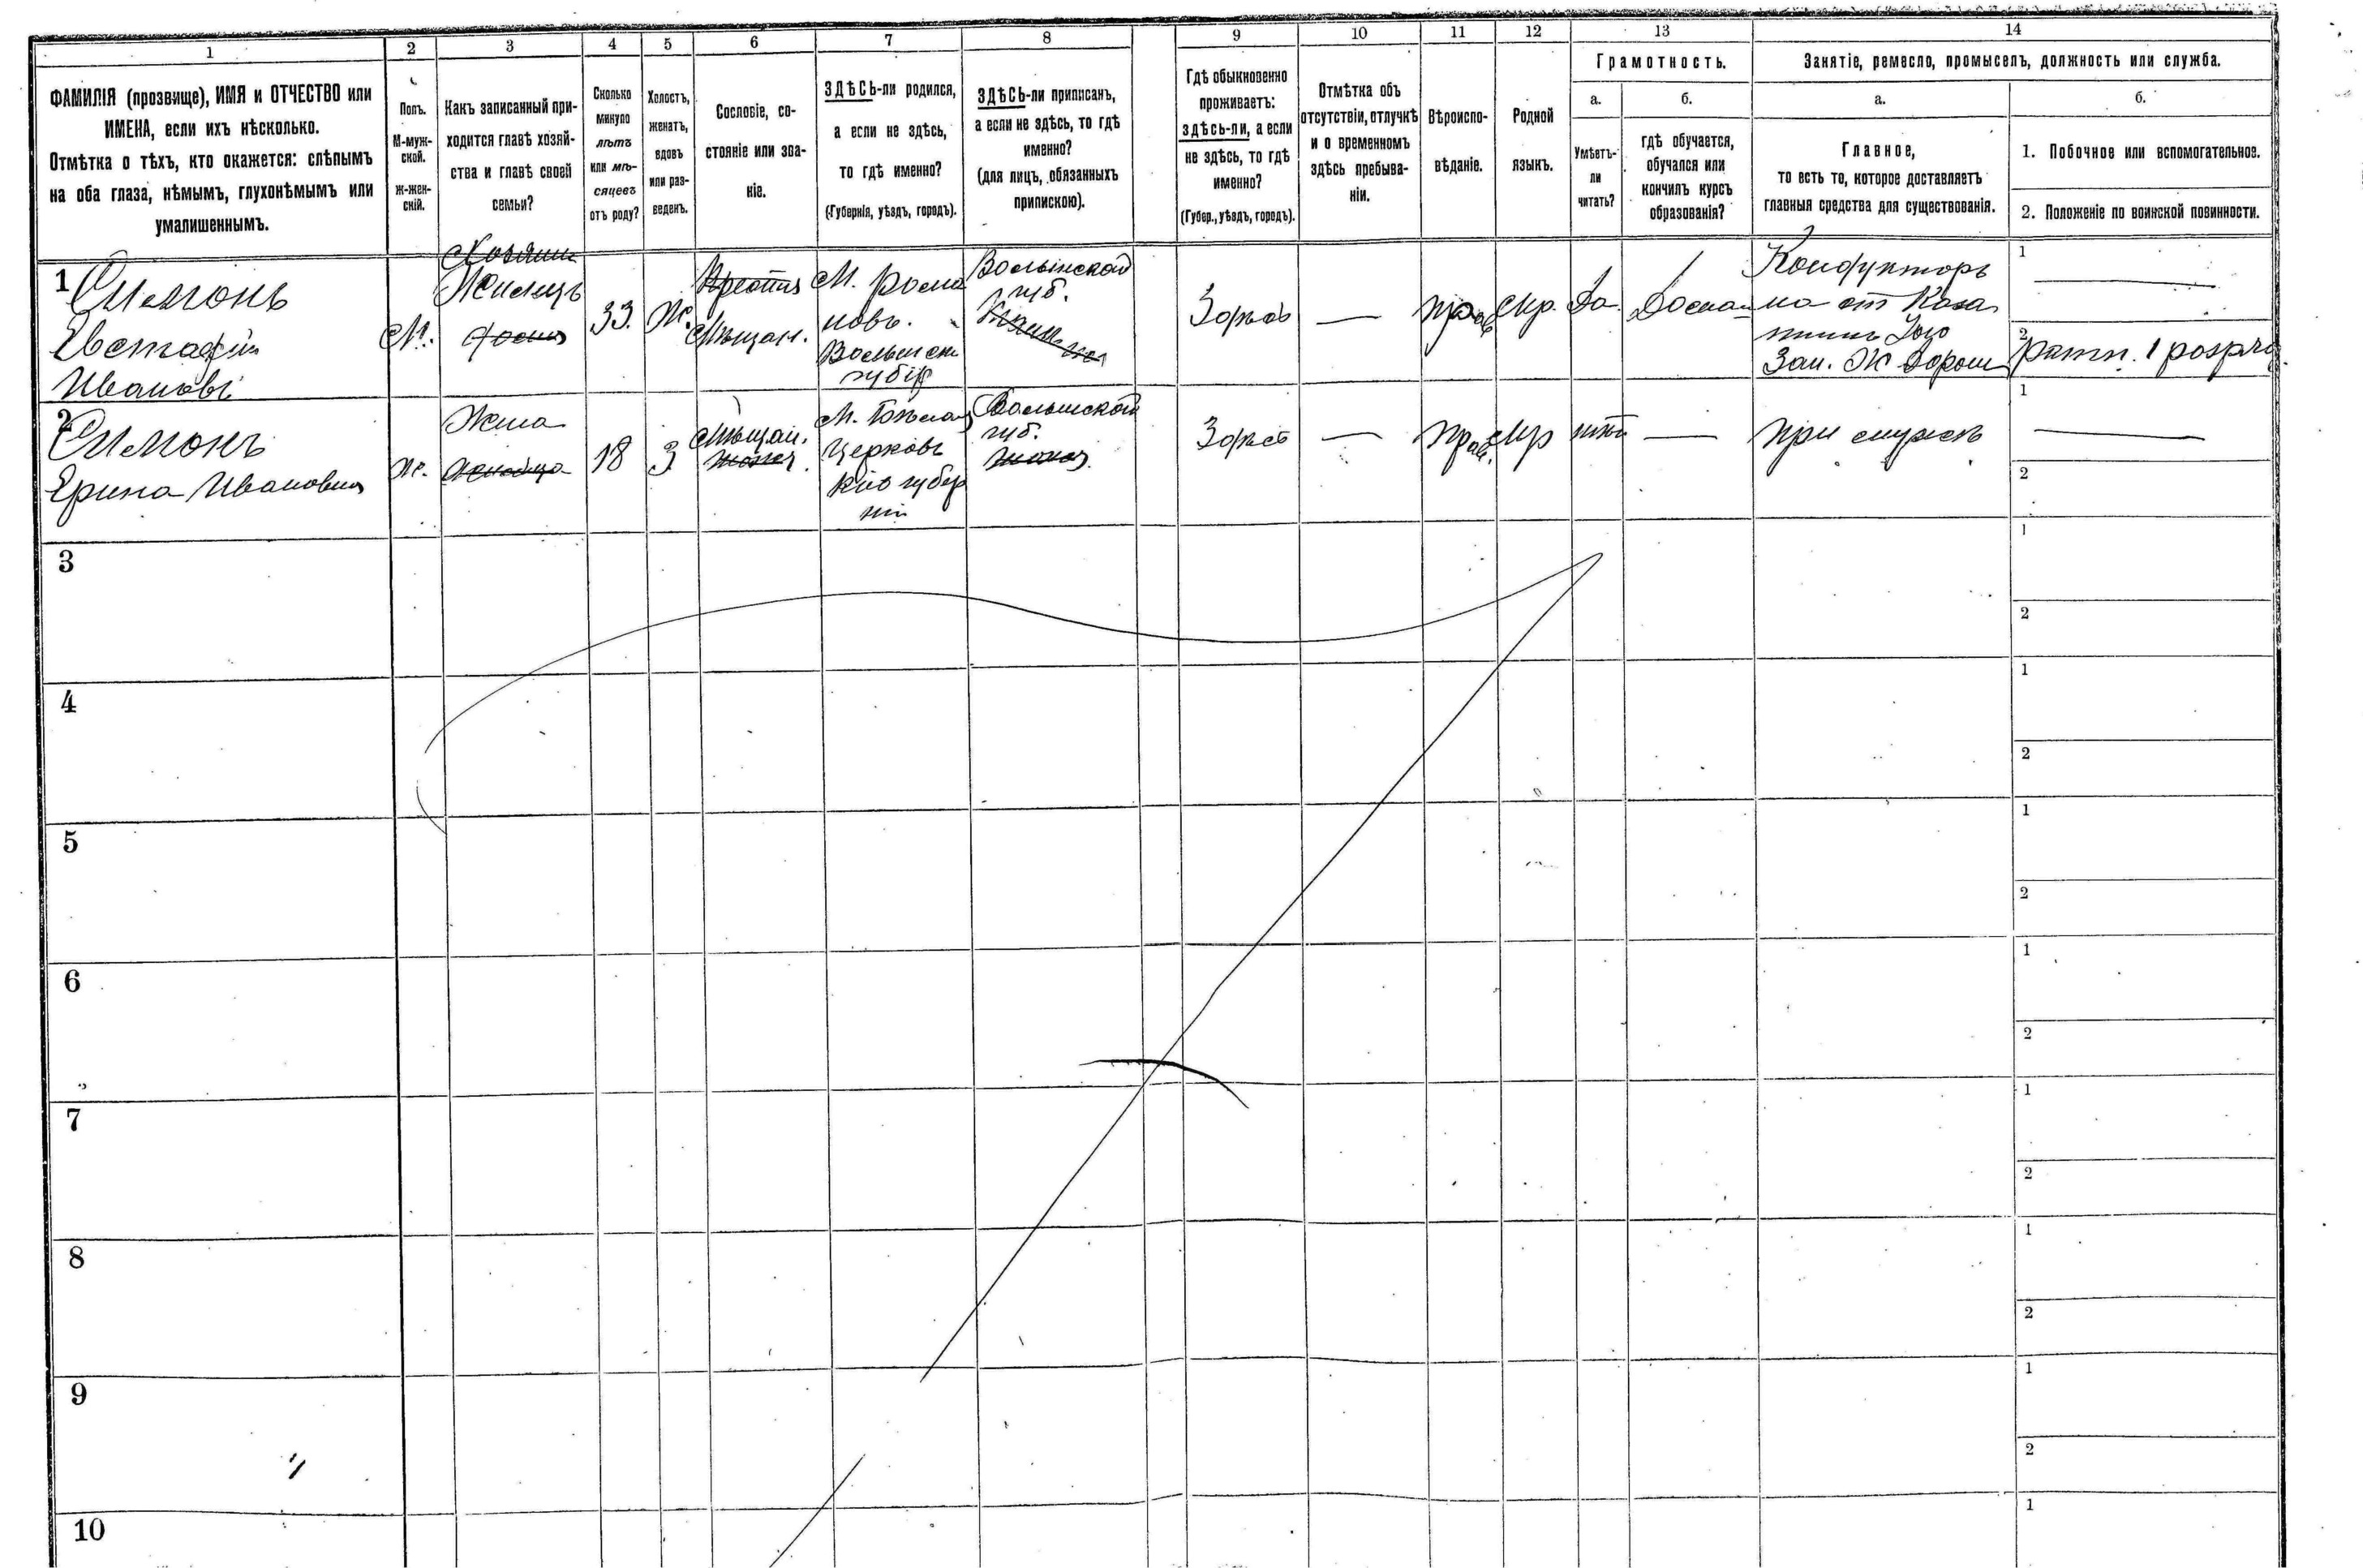 1 2 3 4 5 6 7 8 9 10 11 12 13 14
ФАМИЛІЯ (прозвище), ИМЯ и ОТЧЕСТВО или
ИМЕНА, если ихъ нѣсколько.
Отмѣтка о тѣхъ, кто окажется: слѣпымъ
на оба глаза, нѣмымъ, глухонѣмымъ или
умалишеннымъ.
Полъ.
М-муж-
ской.
Ж-жен-
скій.
Какъ записанный при-
ходится главѣ хозяй-
ства и главѣ своей
семьи?
Сколько
минуло
лѣтъ
или мѣ-
сяцевъ
отъ роду?
Холостъ,
женатъ,
вдовъ
или раз-
веденъ.
Сословіе, со-
стояніе или зва-
ніе.
ЗДѢСЬ-ли родился,
а если не здѣсь,
то гдѣ именно?
(Губернія, уѣздъ, городъ).
ЗДѢСЬ-ли приписанъ,
а если не здѣсь, то гдѣ
именно?
(для лицъ, обязанныхъ
припискою).
Гдѣ обыкновенно
проживаетъ:
здѣсь-ли, а если
не здѣсь, то гдѣ
именно?
(Губер., уѣздъ, городъ).
Отмѣтка объ
отсутствіи, отлучкѣ
и о временномъ
здѣсь пребыва-
ніи.
Вѣроиспо-
вѣданіе.
Родной
языкъ.
Грамотность.
а.
Умѣетъ-
ли
читать?
б.
гдѣ обучается,
обучался или
кончилъ курсъ
образованія?
Занятіе, ремесло, промыселъ, должность или служба.
а.
Главное,
то есть то, которое доставляетъ
главныя средства для существованія.
б.
1. Побочное или вспомогательное.
2. Положеніе по воинской повинности.
1
Симонъ
Евстафій
Ивановъ
М.
Хозяинъ
Жилецъ
33.
Ж.
Мѣщан.
М. Рома
новъ.
Волынск
губір
Волынской
губ.
Здѣсь
—
Прав
Мр.
Да.
Дома
Кондукторъ
на ст Каза
тинъ Юго
Зап. Ж Дорогъ
1
—
2
Ратн. 1 розряд
2
Симонъ
Ерина Ивановна
Ж.
Жена
18
З
Мѣщан.
М. Бѣлая
Церковь
Кіо губер
ніи
Волынской
губ.
Здѣсь
—
Прав.
Мр
нѣт
—
При мужѣ
1
—
2
3
1
2
4
1
2
5
1
2
6
1
2
7
1
2
8
1
2
9
1
2
10
1